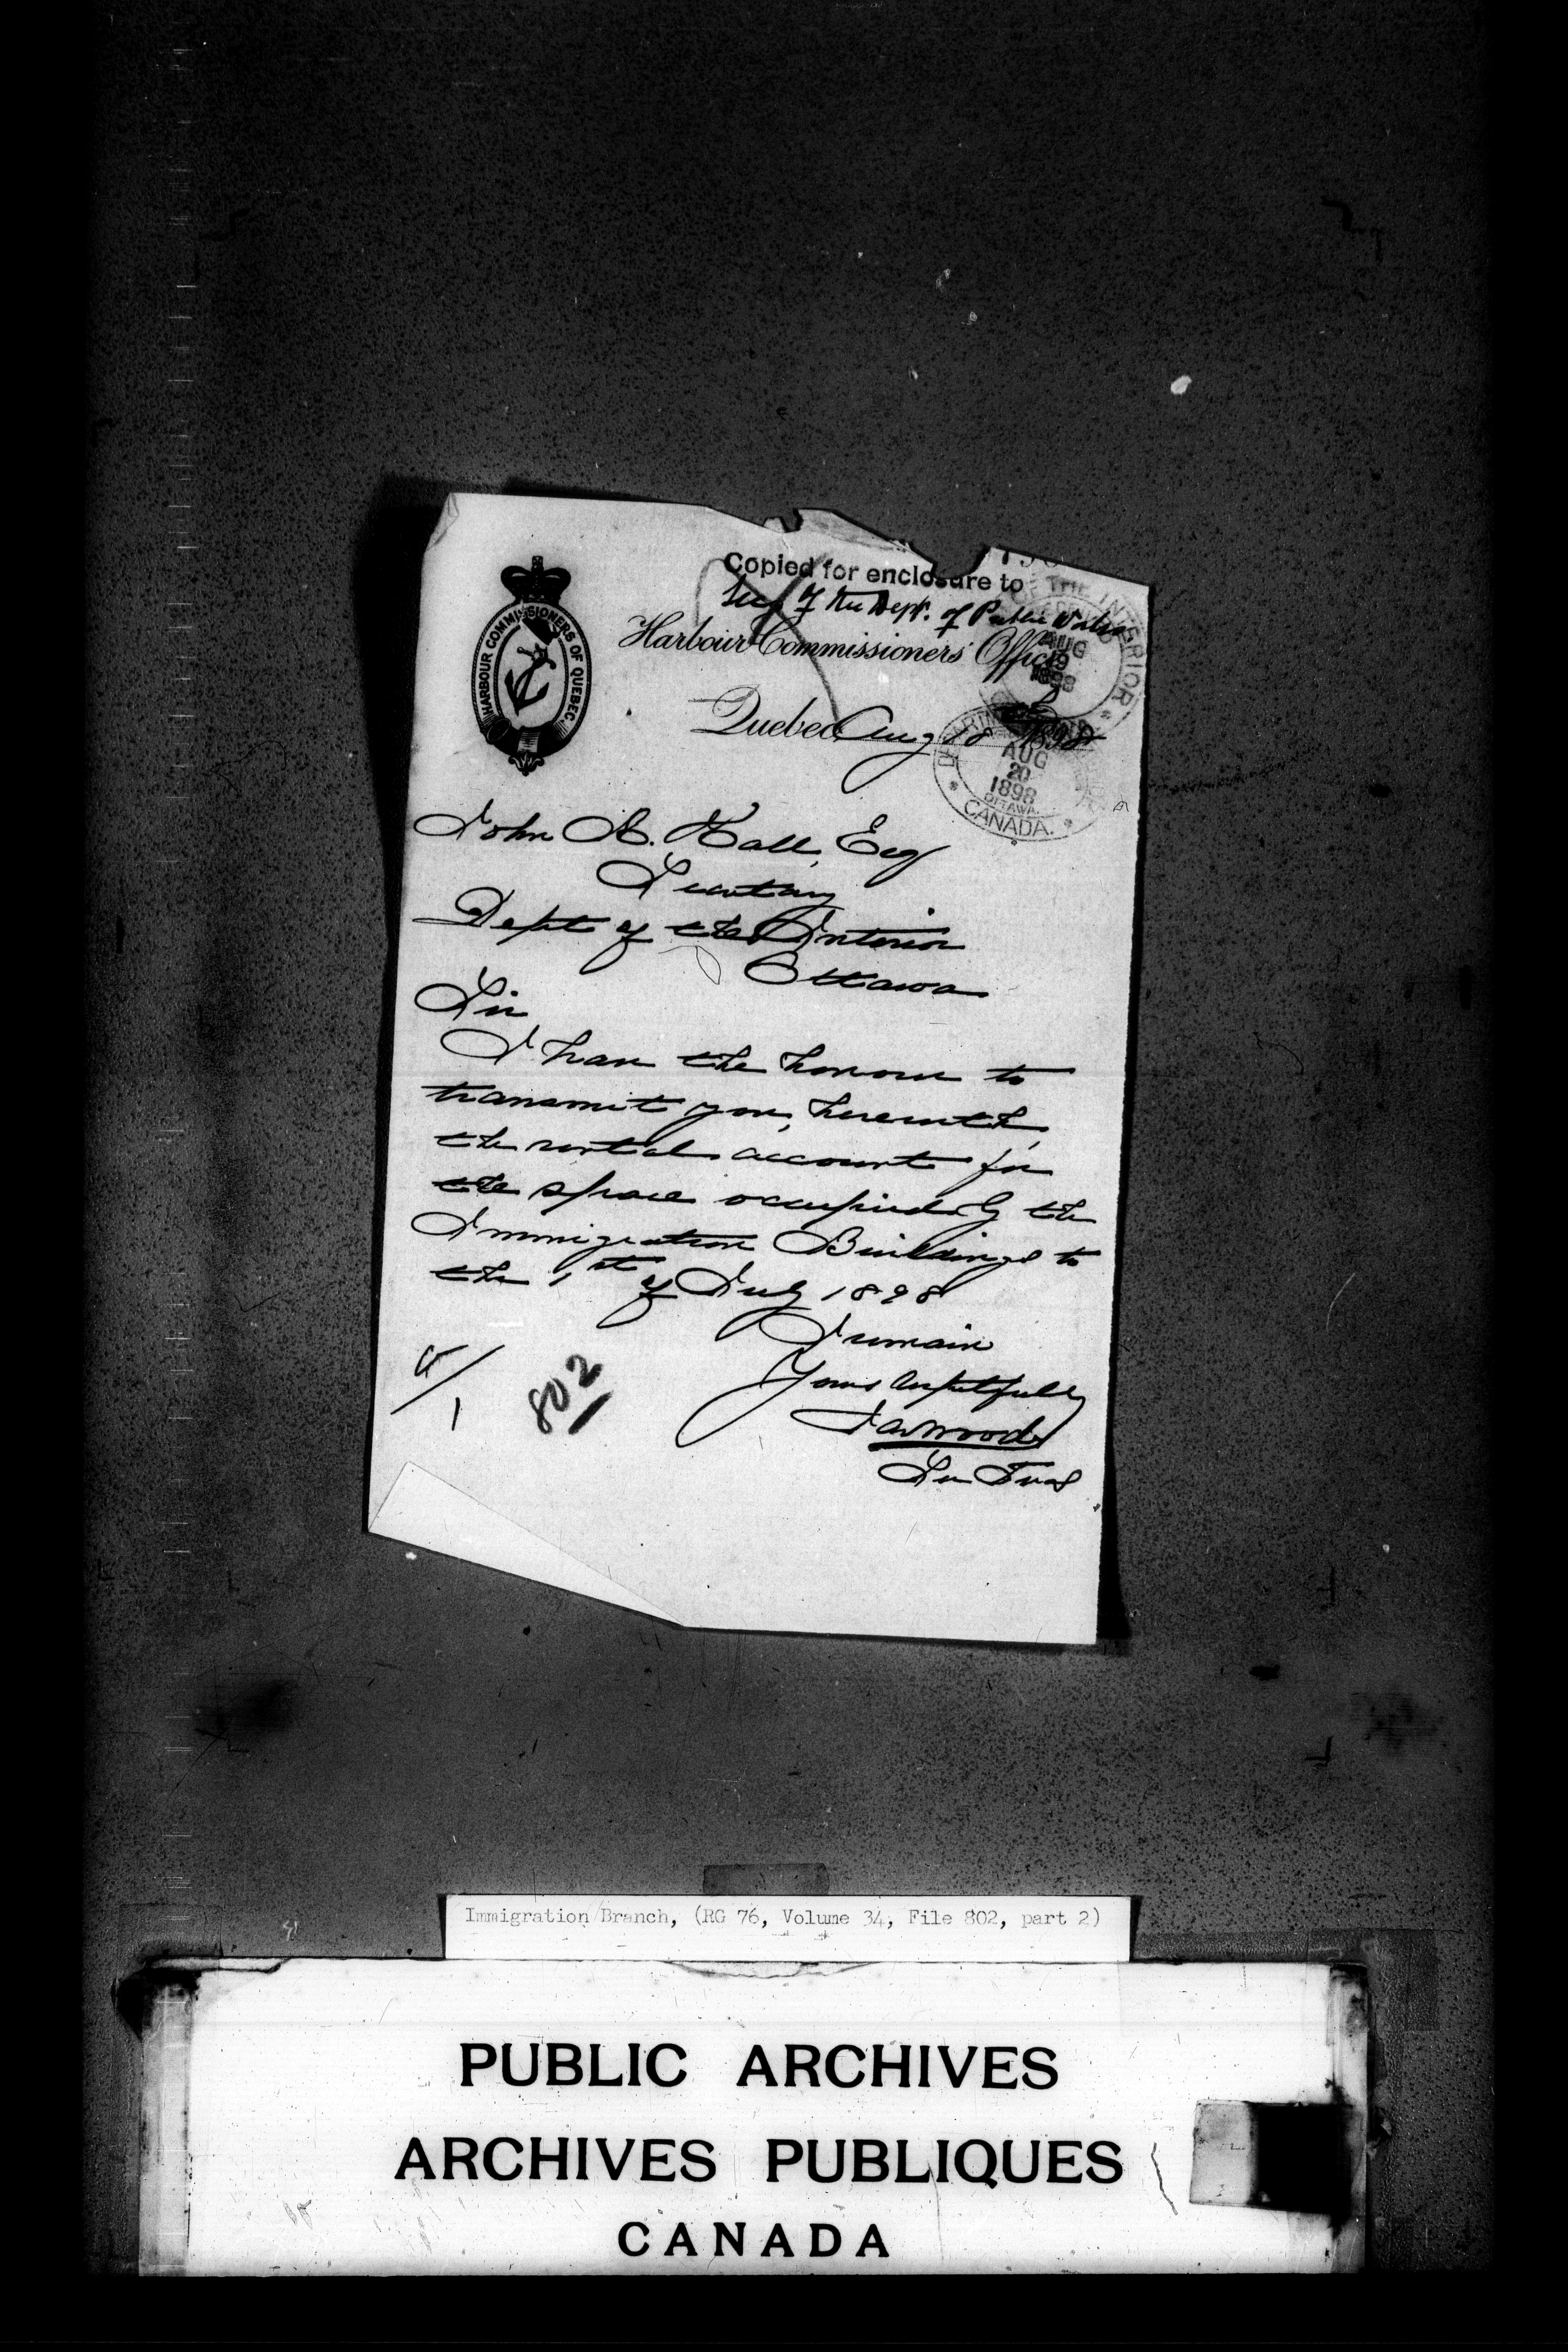 Copied for enclosure to
Secy of the Dept. of Public Works
HARBOUR COMMISSIONERS OF QUEBEC.
Harbour Commissioners' Office
THE INTERIOR
AUG
19
1898
Quebec, Aug 18 1898
AUG
20
1898
OTTAWA.
CANADA.
John A. Hall, Esq
Secretary
Dept of the Interior
Ottawa
Sir
I have the honour to
transmit you, herewith,
the rental accounts for
the space occupied by the
Immigration Buildings to
the 1st of July 1898
I remain
Yours respectfully
Jas Woods
Sec Treas
802
1
Immigration Branch, (RG 76, Volume 34, File 802, part 2)
PUBLIC ARCHIVES
ARCHIVES PUBLIQUES
CANADA